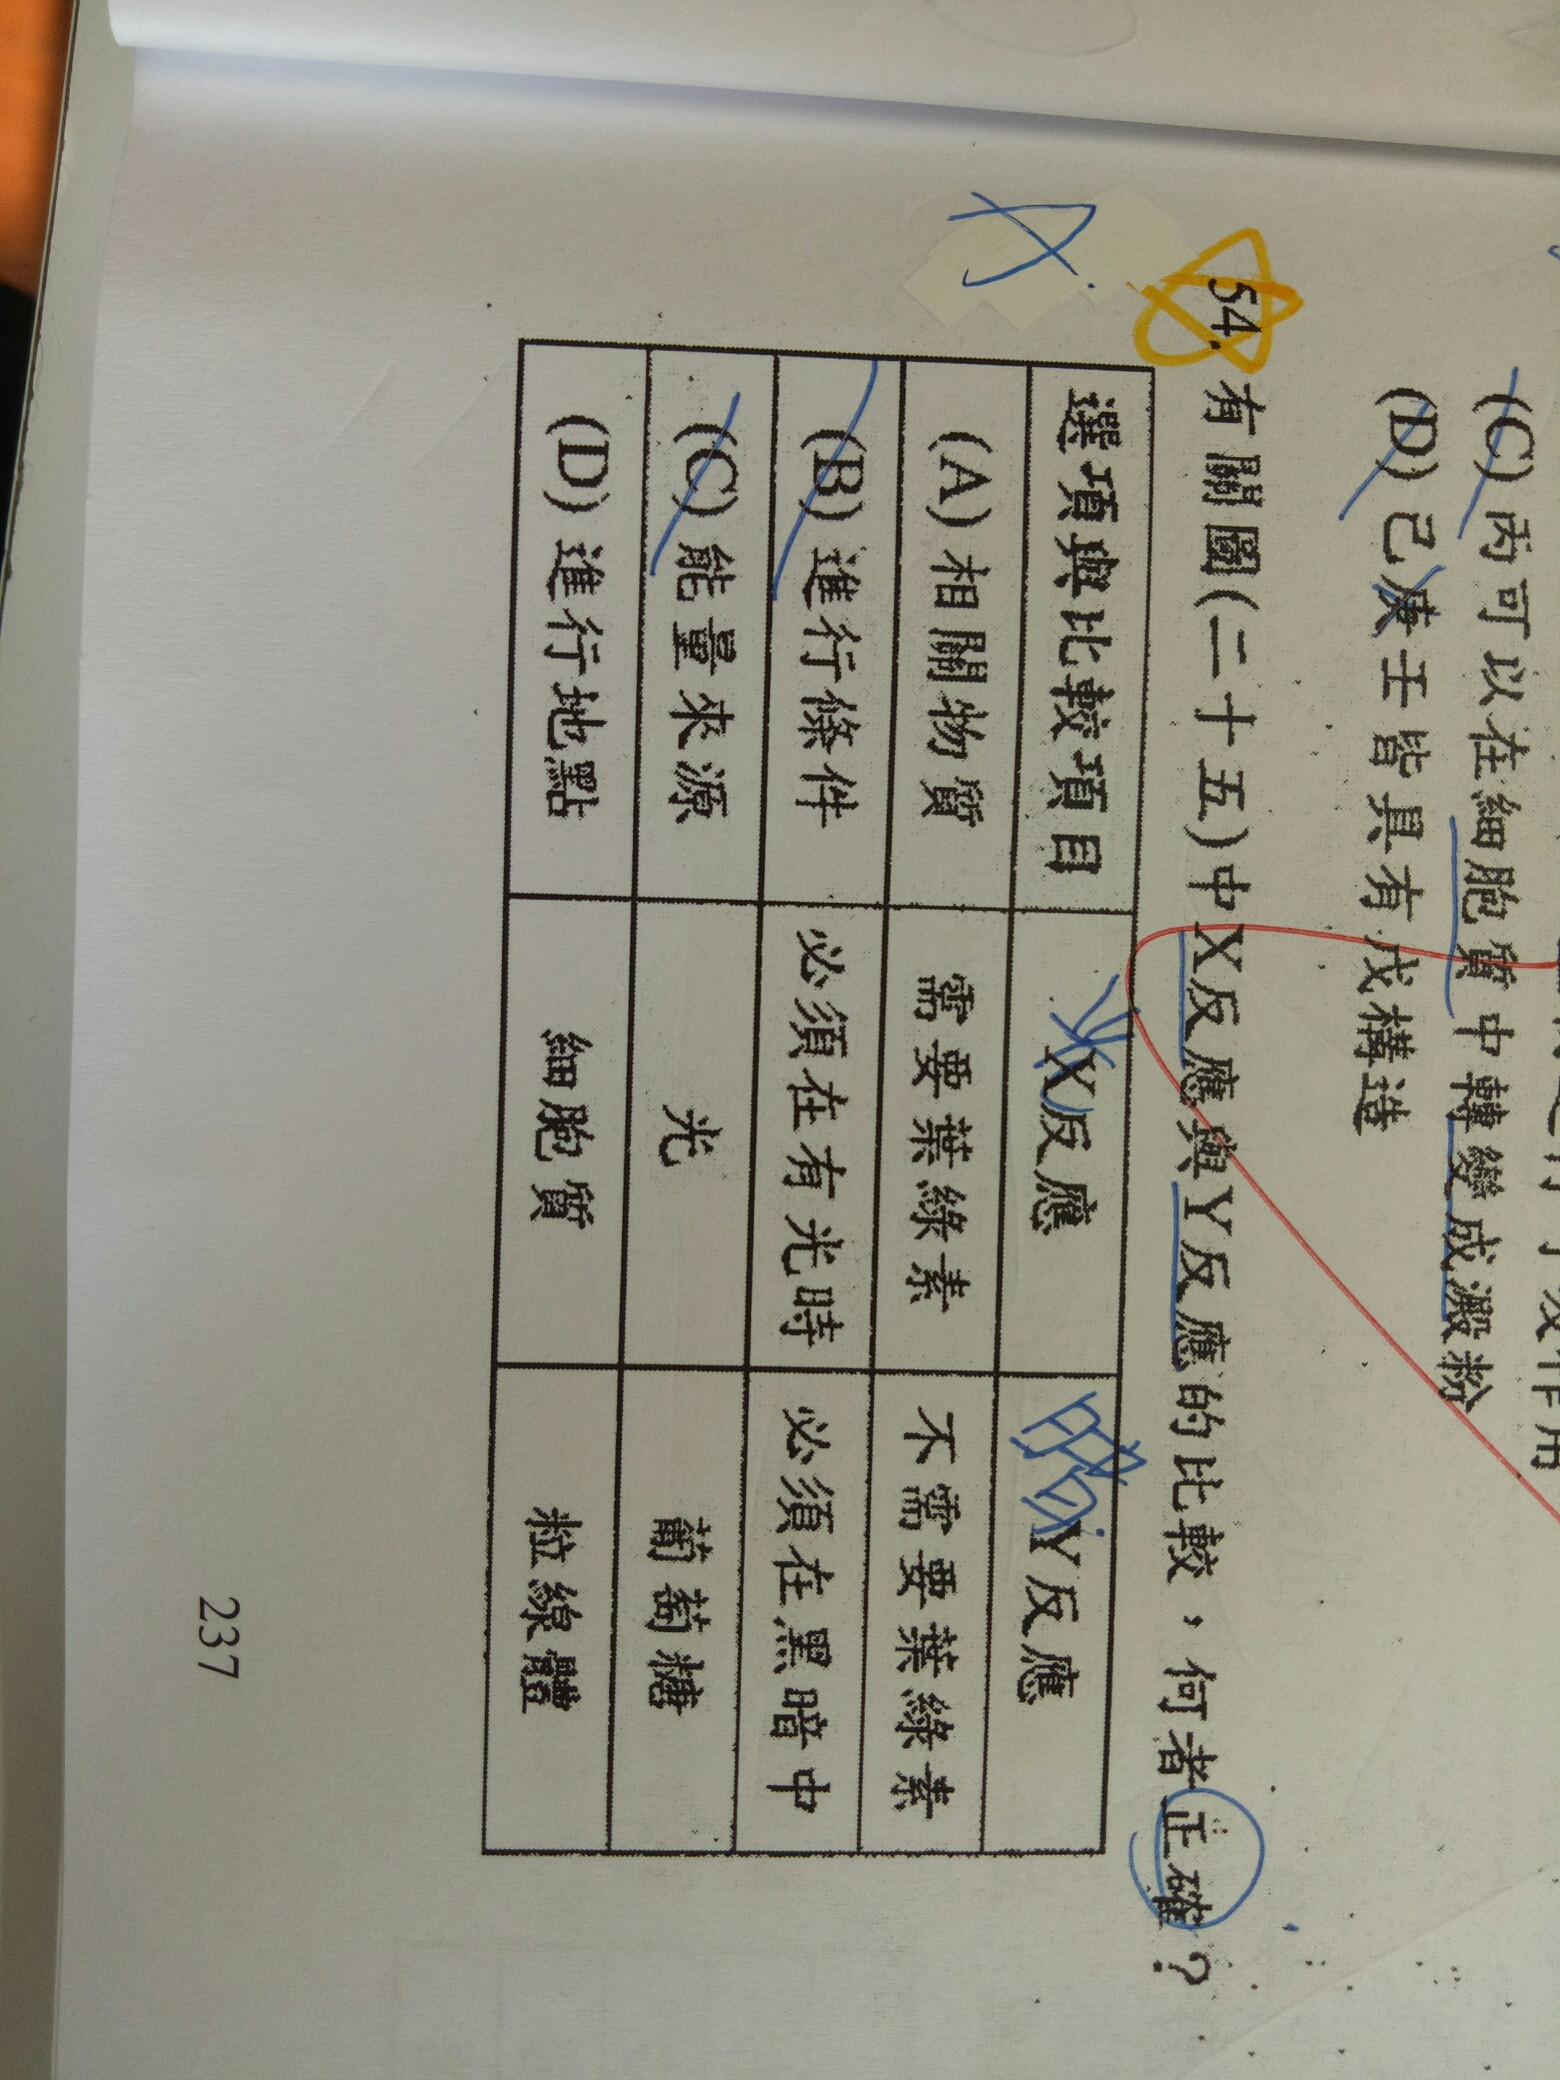 (C)丙可以在細胞質中轉變成澱粉
(D)己庚壬皆具有戊構造
54. 有關圖(二十五)中X反應與Y反應的比較，何者正確？
選項與比較項目 X反應 Y反應
(A)相關物質 需要葉綠素 不需要葉綠素
(B)進行條件 必須在有光時 必須在黑暗中
(C)能量來源 光 葡萄糖
(D)進行地點 細胞質 粒線體
237